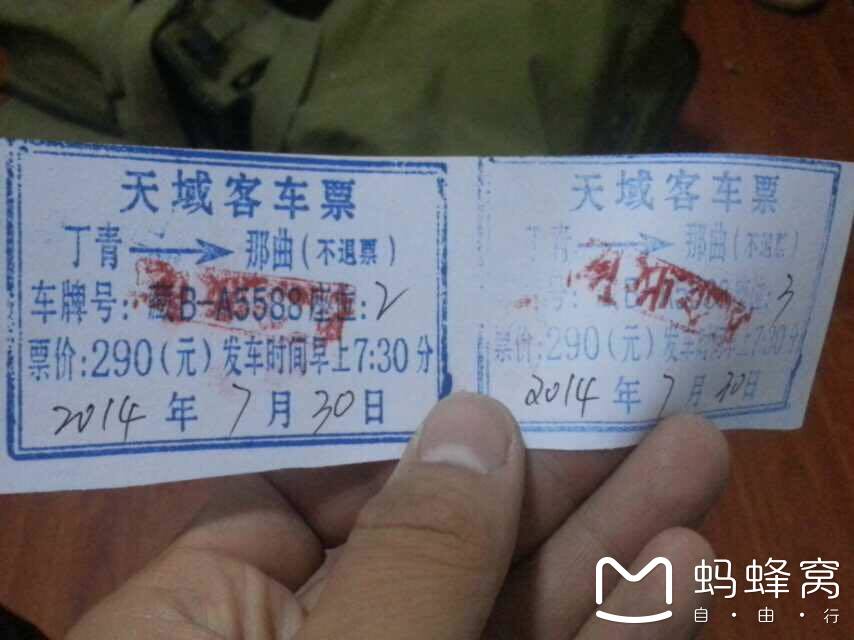 天域客车票
丁青 那曲(不退票)
车牌号:藏B-A5588座位:2
票价:290(元)发车时间早上7:30分
2014年7月30日
天域客车票
丁青 那曲(不退票)
号: B 3
票价:290(元)发车时间早上7:30分
2014年7月30日
蚂蜂窝
自·由·行